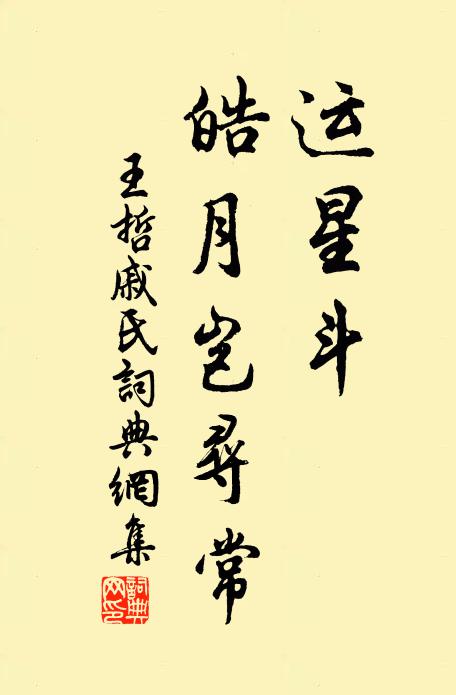 运星斗
皓月岂尋常
王哲戚氏詞典網集
詞典网印